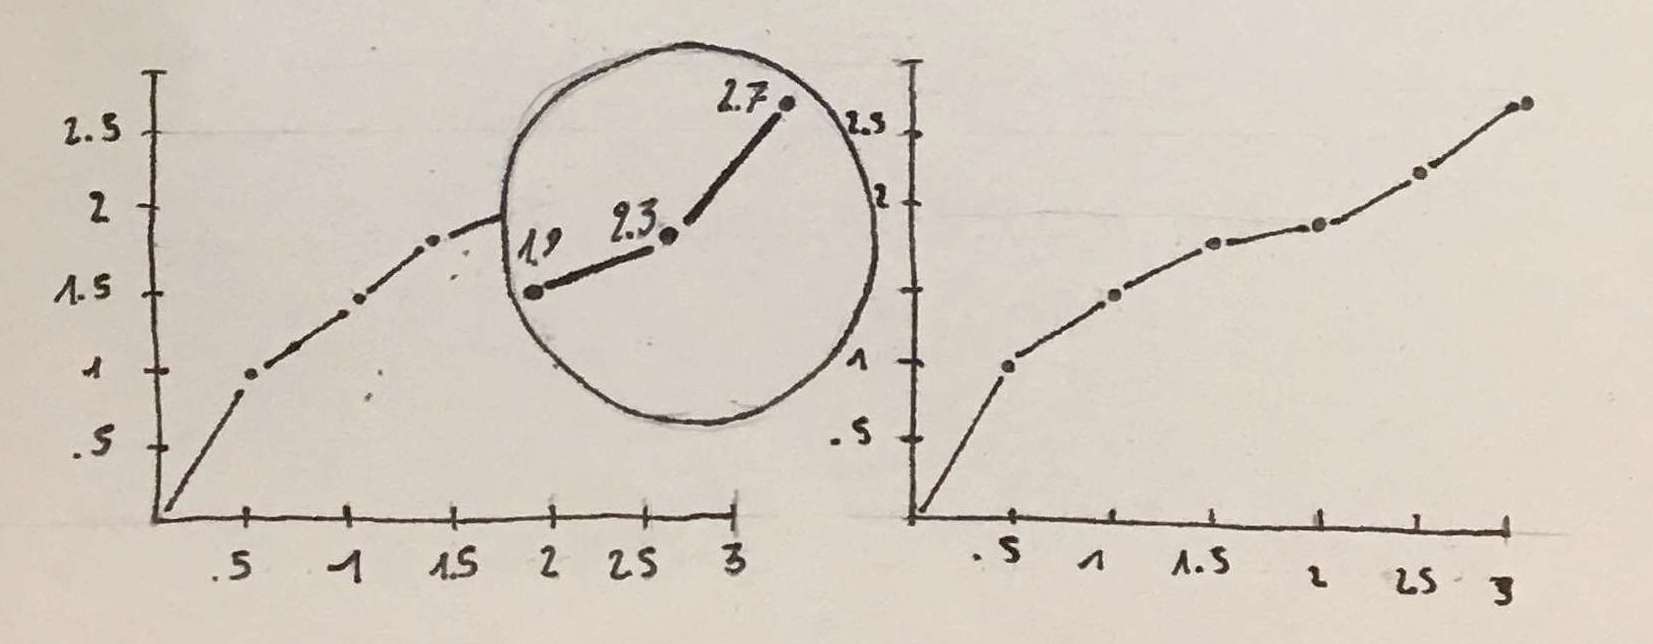 2.5
2
1.5
1
.5
.5 1 1.5 2 2.5 3
2.7
2.3
1.9
2.5
2
1
.5
.5 1 1.5 2 2.5 3